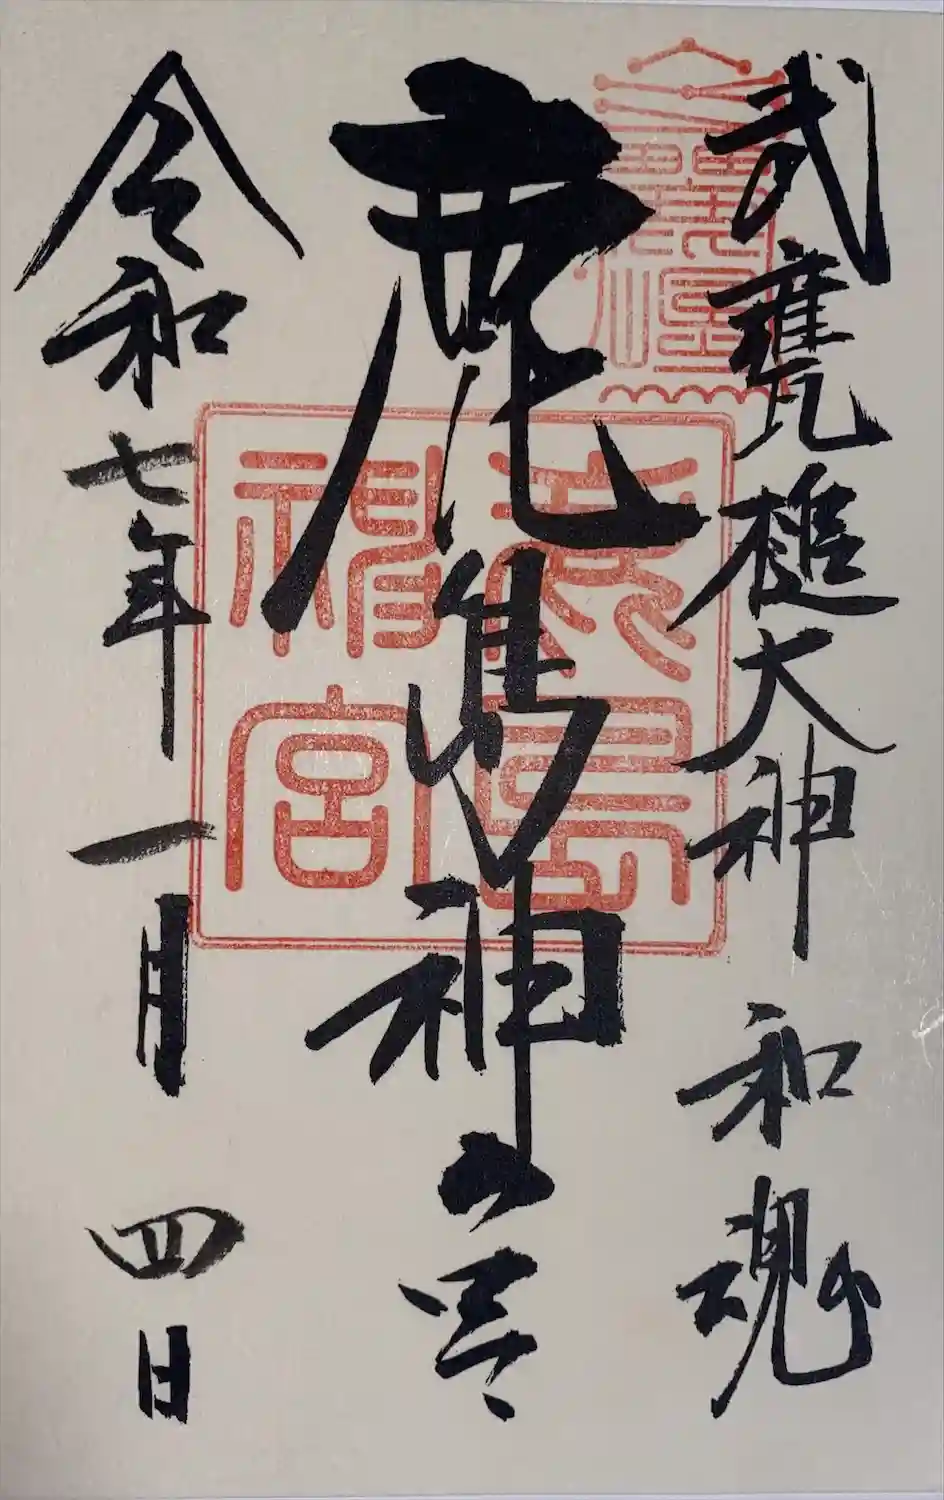 武甕槌大神 和魂
鹿島神宮
令和七年一月四日
鹿島神宮